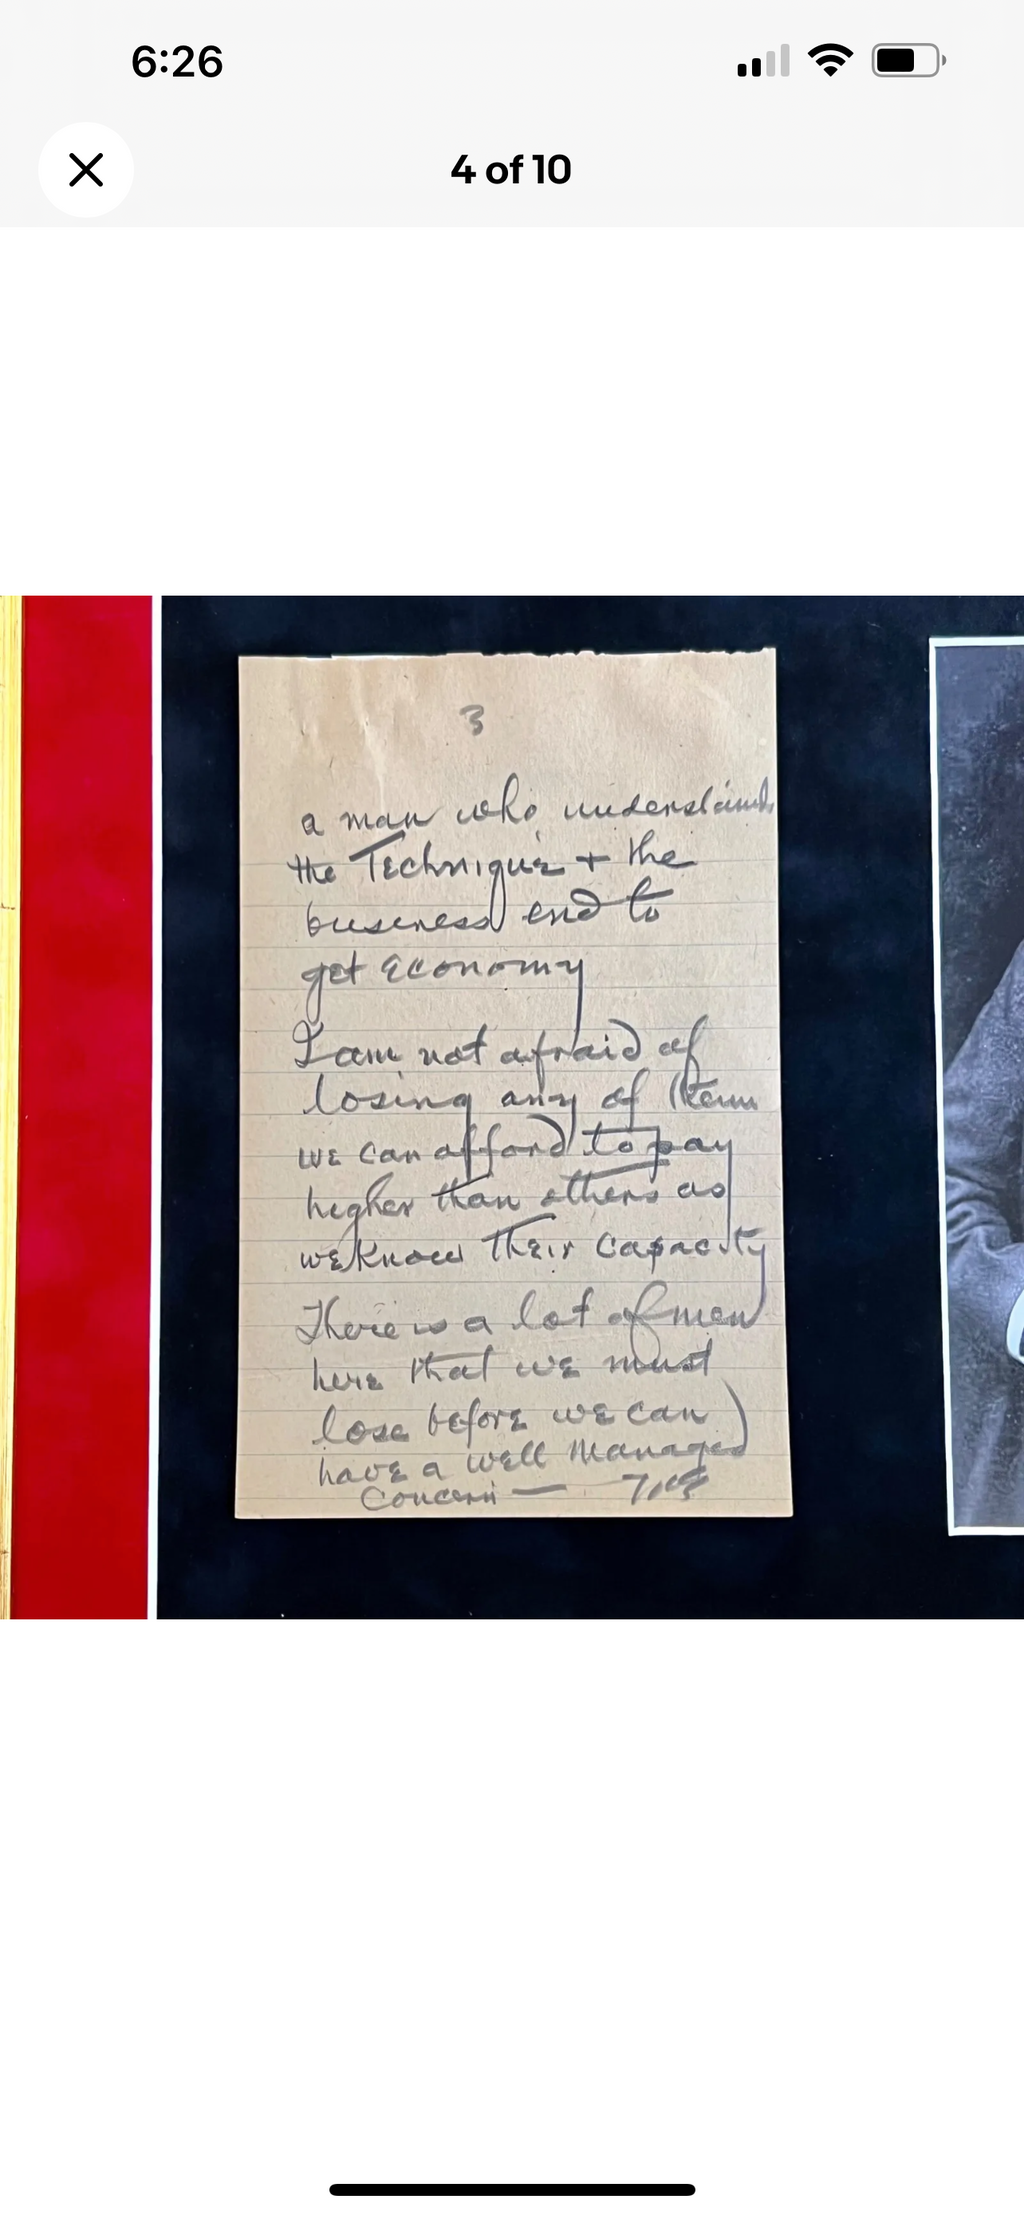 6:26
4 of 10
3
a man who understands
the Technique + the
business end to
get economy
I am not afraid of
losing any of them
we can afford to pay
higher than others as
we know their capacity
There is a lot of men
here that we must
lose before we can
have a well managed
Concern —